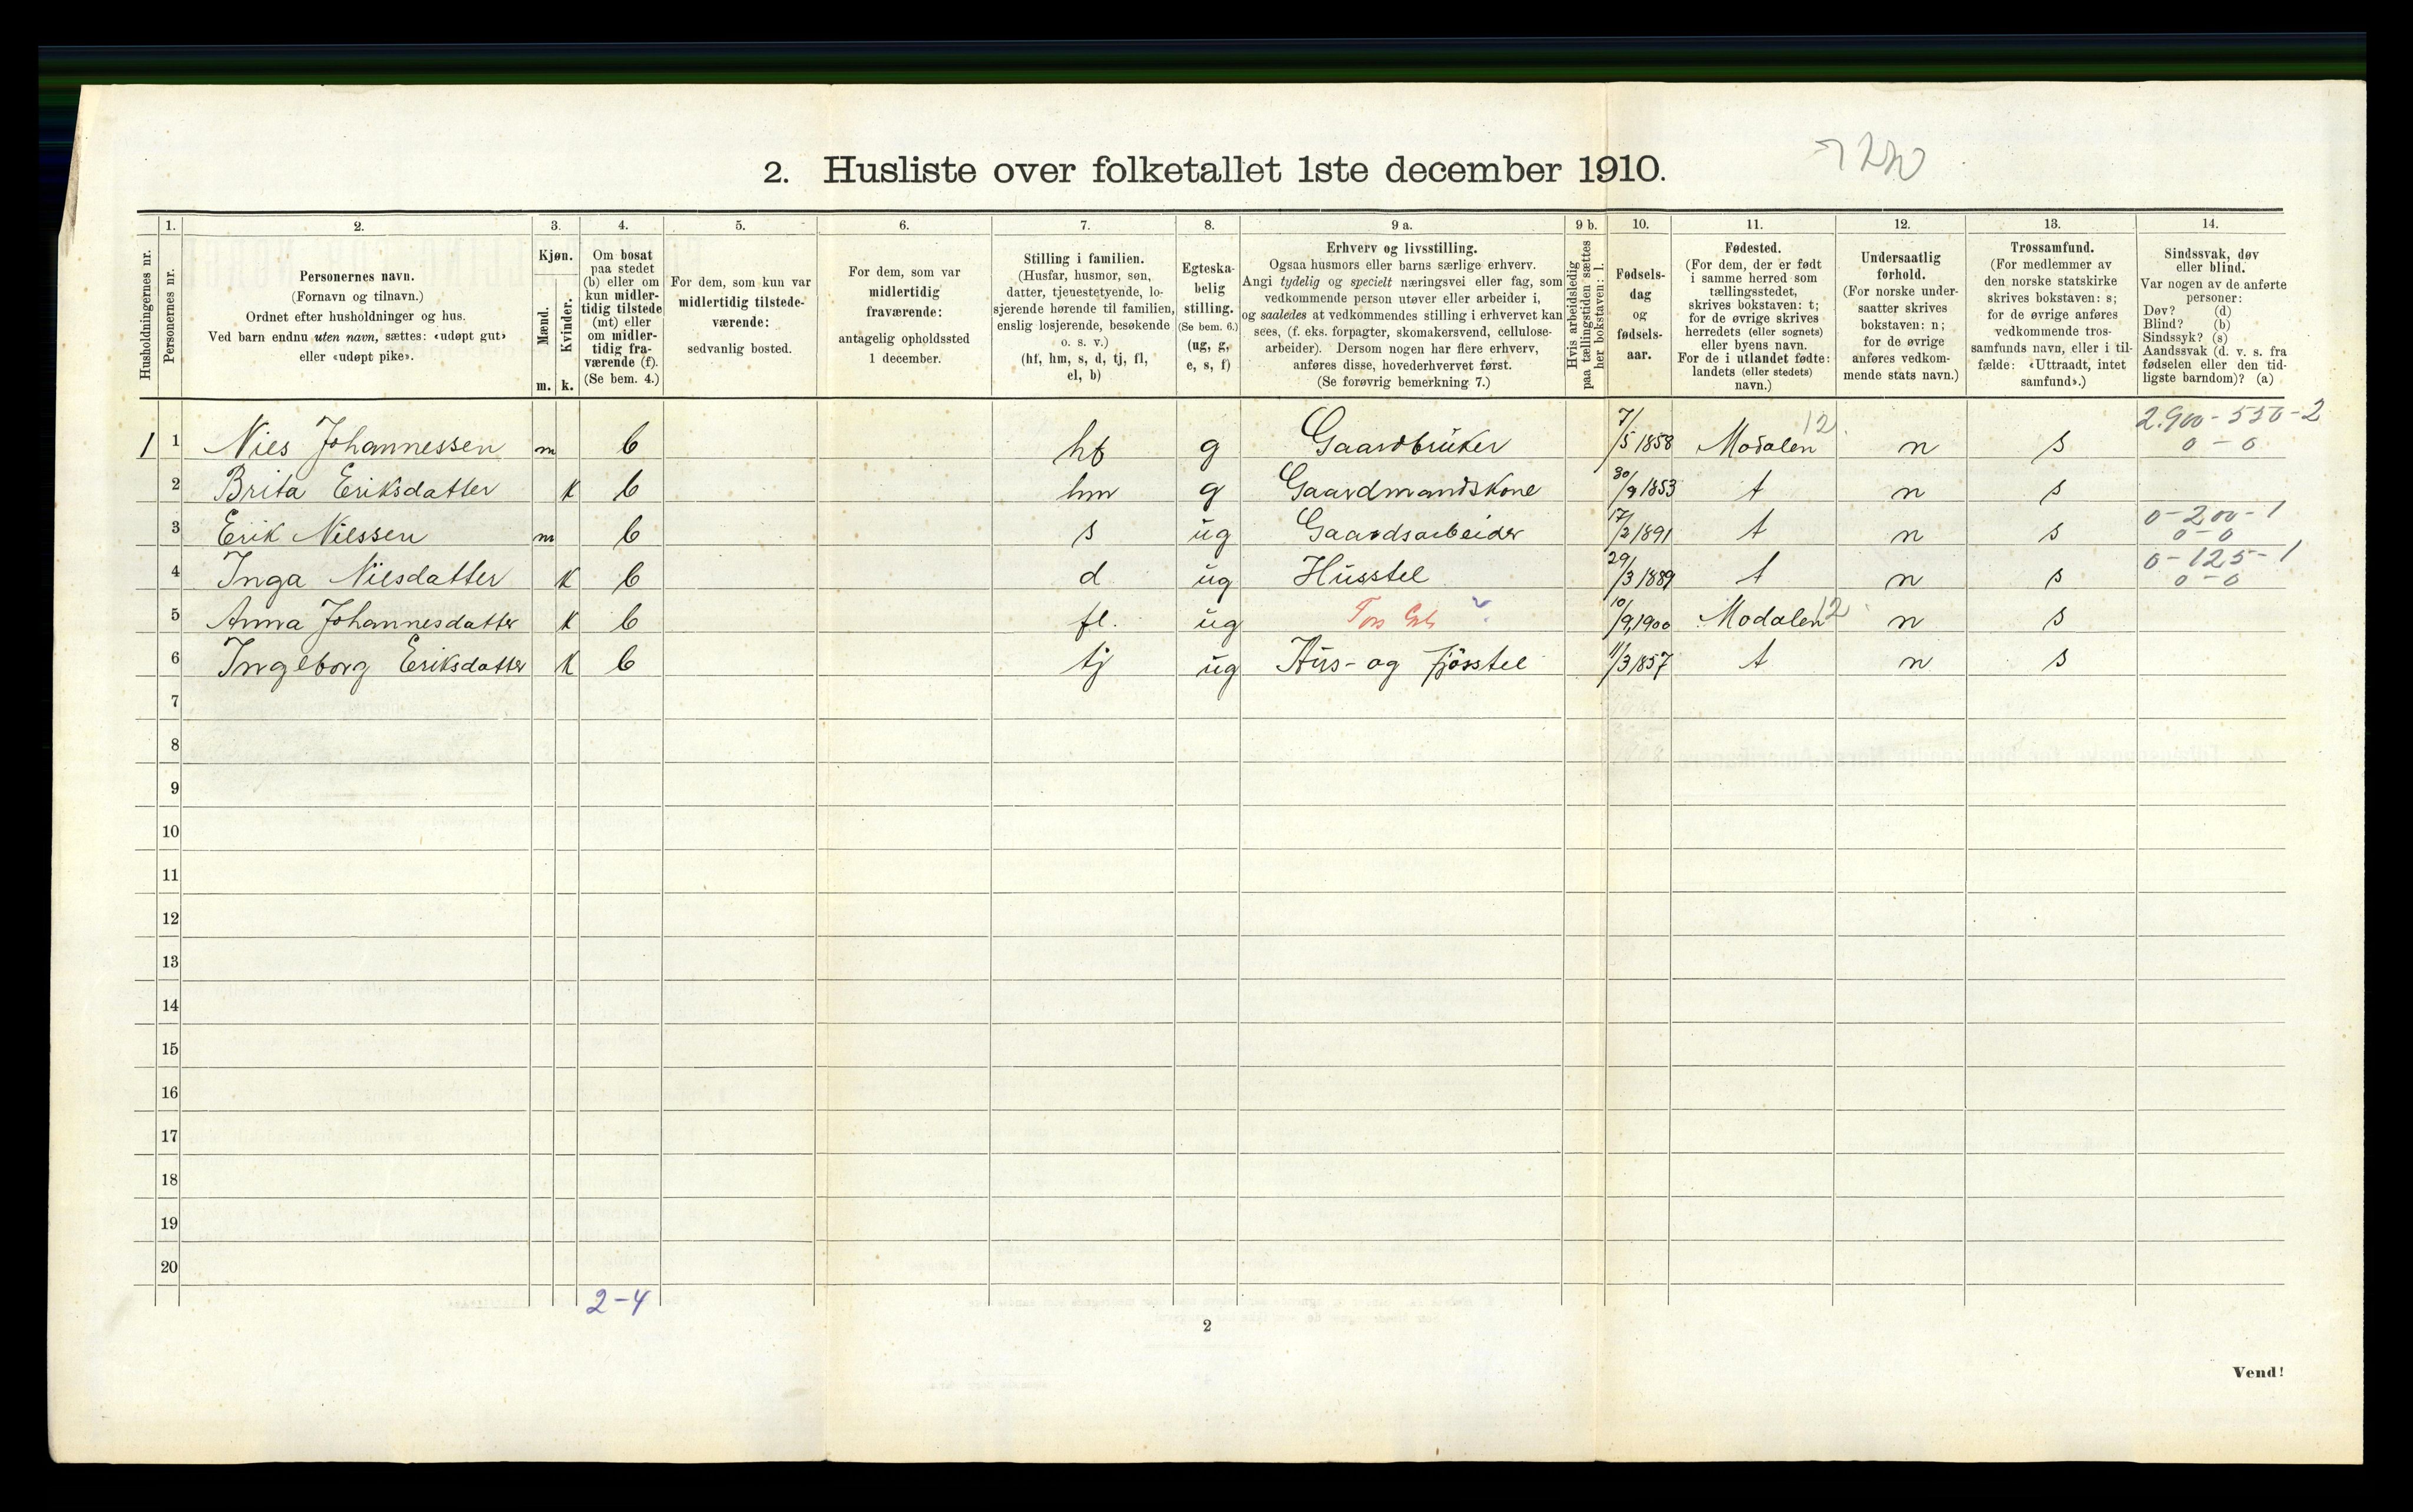 2. Husliste over folketallet 1ste december 1910.
1. 2. 3. 4. 5. 6. 7. 8. 9 a. 9 b. 10. 11. 12. 13. 14.
Husholdningernes nr.
Personernes nr.
Personernes navn.
(Fornavn og tilnavn.)
Ordnet efter husholdninger og hus.
Ved barn endnu uten navn, sættes: «udøpt gut»
eller «udøpt pike».
Kjøn.
Mænd.
Kvinder.
m. k.
Om bosat
paa stedet
(b) eller om
kun midler-
tidig tilstede
(mt) eller
om midler-
tidig fra-
værende (f).
(Se bem. 4.)
For dem, som kun var
midlertidig tilstede-
værende:
sedvanlig bosted.
For dem, som var
midlertidig
fraværende:
antagelig opholdssted
1 december.
Stilling i familien.
(Husfar, husmor, søn,
datter, tjenestetyende, lo-
sjerende hørende til familien,
enslig losjerende, besøkende
o. s. v.)
(hf, hm, s, d, tj, fl,
el, b)
Egteska-
belig
stilling.
(Se bem. 6.)
(ug, g,
e, s, f)
Erhverv og livsstilling.
Ogsaa husmors eller barns særlige erhverv.
Angi tydelig og specielt næringsvei eller fag, som
vedkommende person utøver eller arbeider i,
og saaledes at vedkommendes stilling i erhvervet kan
sees, (f. eks. forpagter, skomakersvend, cellulose-
arbeider). Dersom nogen har flere erhverv,
anføres disse, hovederhvervet først.
(Se forøvrig bemerkning 7.)
Hvis arbeidsledig
paa tællingstiden sættes
her bokstaven: l.
Fødsels-
dag
og
fødsels-
aar.
Fødested.
(For dem, der er født
i samme herred som
tællingsstedet,
skrives bokstaven: t;
for de øvrige skrives
herredets (eller sognets)
eller byens navn.
For de i utlandet fødte:
landets (eller stedets)
navn.)
Undersaatlig
forhold.
(For norske under-
saatter skrives
bokstaven: n;
for de øvrige
anføres vedkom-
mende stats navn.)
Trossamfund.
(For medlemmer av
den norske statskirke
skrives bokstaven: s;
for de øvrige anføres
vedkommende tros-
samfunds navn, eller i til-
fælde: «Uttraadt, intet
samfund».)
Sindssvak, døv
eller blind.
Var nogen av de anførte
personer:
Døv? (d)
Blind? (b)
Sindssyk? (s)
Aandssvak (d. v. s. fra
fødselen eller den tid-
ligste barndom)? (a)
1 1 Nies Johannessen m b hf g Gaardbruker 7/5 1858 Modalen 12 n s 2.900-550-2
0-0
2 Brita Eriksdatter k b hm g Gaardmandskone 30/9 1853 t n s
3 Erik Nilssen m b s ug Gaardsarbeider 17/2 1891 t n s 0-200-1
0-0
4 Inga Nilsdatter k b d ug Husstel 29/3 1889 t n s 0-125-1
0-0
5 Anna Johannesdatter k b fl. ug 10/9 1900 Modalen 12 n s
6 Ingeborg Eriksdatter k b tj ug Hus- og fjösstel 11/3 1857 t n s
7
8
9
10
11
12
13
14
15
16
17
18
19
20
2-4
2
Vend!